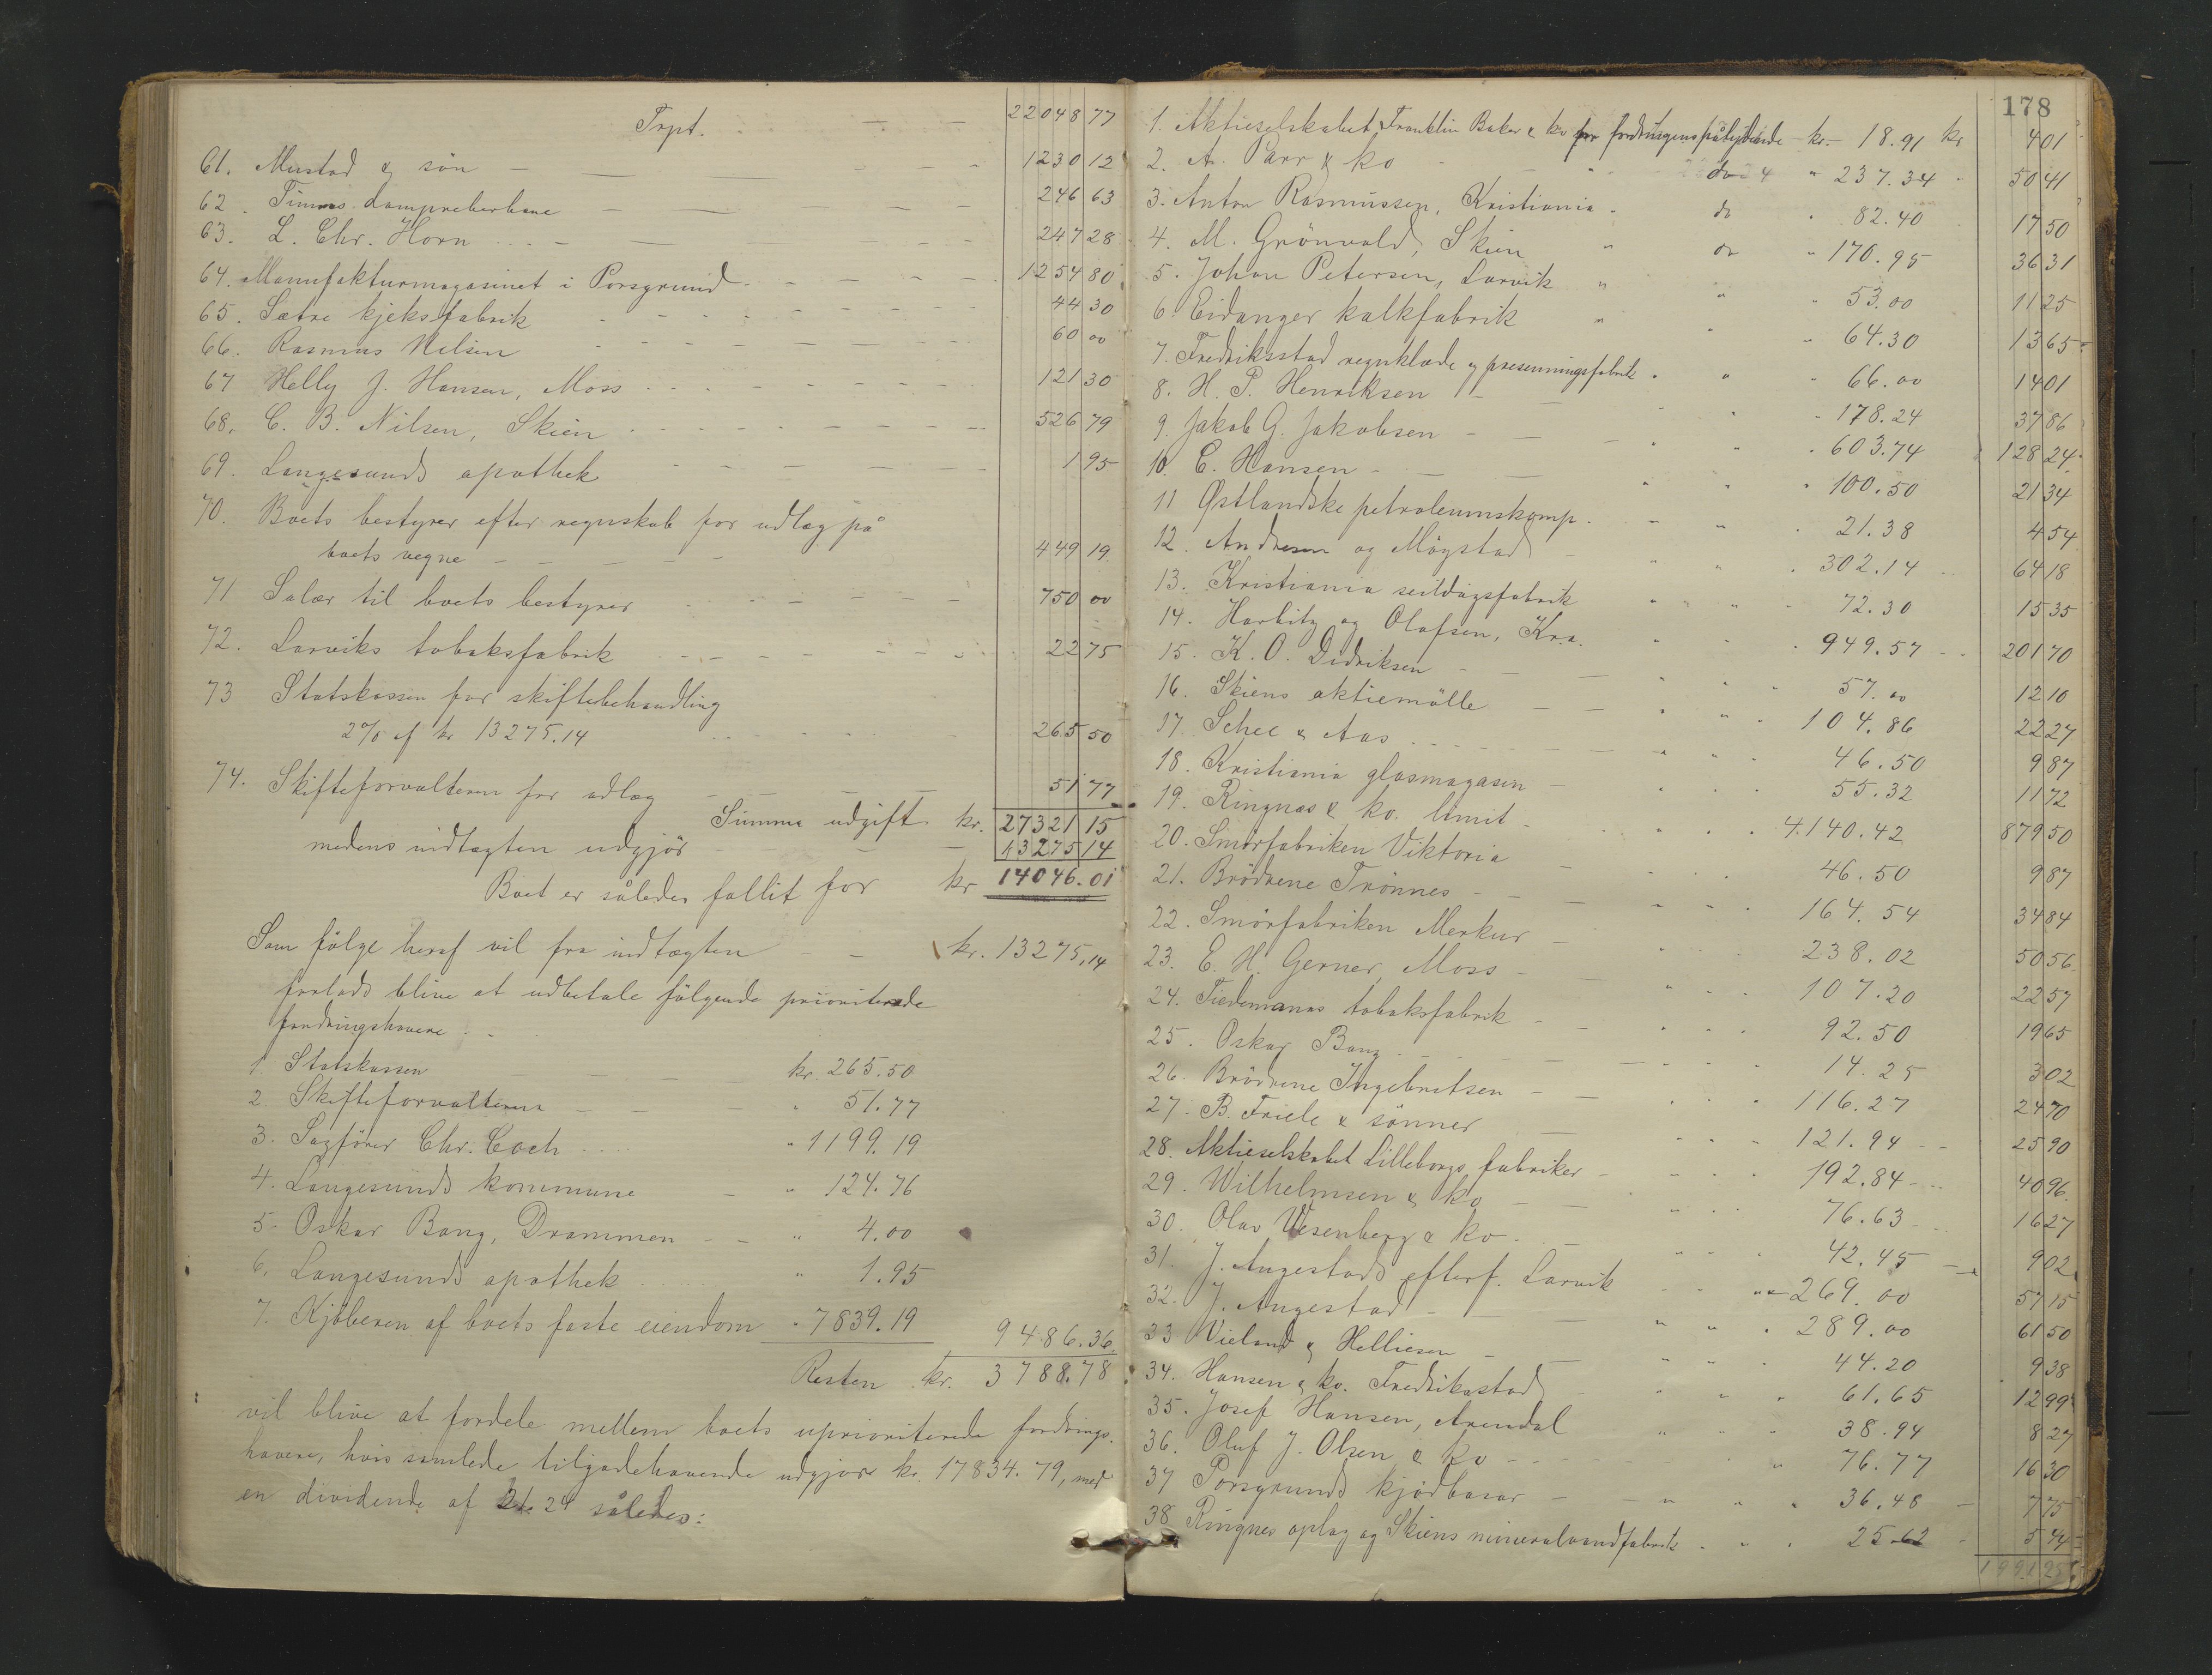 Trpt. 22048 77
61. Mustad & sön 1230 12
62. Timms dampreberbane 246 63
63. L. Chr. Horn 247 28
64. Manufakturmagasinet i Porsgrund 1254 80
65. Sætre kjeksfabrik 44 30
66. Rasmus Nilsen 60 00
67 Helly J. Hansen, Moss 121 30
68. C. B. Nilsen, Skien 526 79
69. Langesunds apothek 1 95
70. Boets bestyrer efter regnskab for udlæg på
boets vegne 449 19
71 Salær til boets bestyrer 750 00
72. Larviks tobaksfabrik 22 75
73 Statskassen for skiftebehandling
2% af kr 13275.14 265 50
74. Skifteforvalteren for udlæg 51 77
Summa udgift kr. 27321 15
medens indtægten udgjör 13275 14
Boet er således fallit for kr 14046.01
Som fölge heraf vil fra indtægten kr. 13275,14
forlods blive at udbetale fölgende prioriterede
fordringshavere
1. Statskassen kr. 265.50
2 Skifteforvalteren " 51.77
3. Sagförer Chr. Coch " 1199.19
4. Langesunds kommune " 124.76
5. Oskar Bang, Drammen " 4.00
6. Langesunds apothek " 1.95
7. Kjöberen af boets faste eiendom " 7839.19 9486.36
Resten kr. 3788.78
vil blive at fordele mellem boets uprioriterede fordrings-
havere, hvis samlede tilgodehavende udgjör kr. 17834.79, med
en dividende af 21.24 således:
178
1. Aktieselskabet Franklin Baker & ko for fordringens pålydende kr. 18.91 kr 4 01
2. A. Parr & ko do " 237.34 50 41
3. Anton Rasmussen, Kristiania do " 82.40 17 50
4. M. Grönvold, Skien " do " 170.95 36 31
5. Johan Petersen, Larvik " " " 53.00 11 25
6. Eidanger kalkfabrik " " " 64.30 13 65
7. Fredriksstad regnklæde og presenningsfabrik " " " 66.00 14 01
8. H. P. Henriksen " " " 178.24 37 86
9. Jakob G. Jakobsen " " " 603.74 128 24
10. C. Hansen " " " 100.50 21 34
11 Østlandske petroleumskomp. " " " 21.38 4 54
12. Andresen og Mögstad " " " 302.14 64 18
13. Kristiania seildugsfabrik " " " 72.30 15 35
14. Harbitz og Olafsen, Kra. " " " 949.57 201 70
15. K. O. Didriksen " " " 57.00 12 10
16. Skiens aktiemölle " " " 104.86 22 27
17. Schee & Aas " " " 46.50 9 87
18. Kristiania glasmagasin " " " 55.32 11 72
19. Ringnæs & ko. limit " " " 4.140.42 879 50
20. Smörfabriken Viktoria " " " 46.50 9 87
21. Brödrene Trönnes " " " 164.54 34 84
22. Smörfabriken Merkur " " " 238.02 50 56
23. E. H. Gerner, Moss " " " 107.20 22 57
24. Tiedemanns tobaksfabrik " " " 92.50 19 65
25. Oskar Bang " " " 14.25 3 02
26. Brödrene Ingebretsen " " " 116.27 24 70
27. B. Friele & sönner " " " 121.94 25 90
28. Aktieselskabet Lilleborgs fabriker " " " 192.84 40 96
29. Wilhelmsen & ko " " " 76.63 16 27
30. Olav Wesenberg & ko " " " 42.45 9 02
31. J. Angestads efterf. Larvik " " " 269.00 57 15
32. J. Angestad " " " 289.00 61 50
33 Vieland & Helliesen " " " 44.20 9 38
34. Hansen & ko. Fredriksstad " " " 61.65 12 99
35. Josef Hansen, Arendal " " " 38.94 8 27
36. Oluf J. Olsen & ko " " " 76.77 16 30
37 Porsgrunds kjödbasar " " " 36.48 7 75
38 Ringnes oplag og Skiens mineralvandfabrik " " " 25.62 5 44